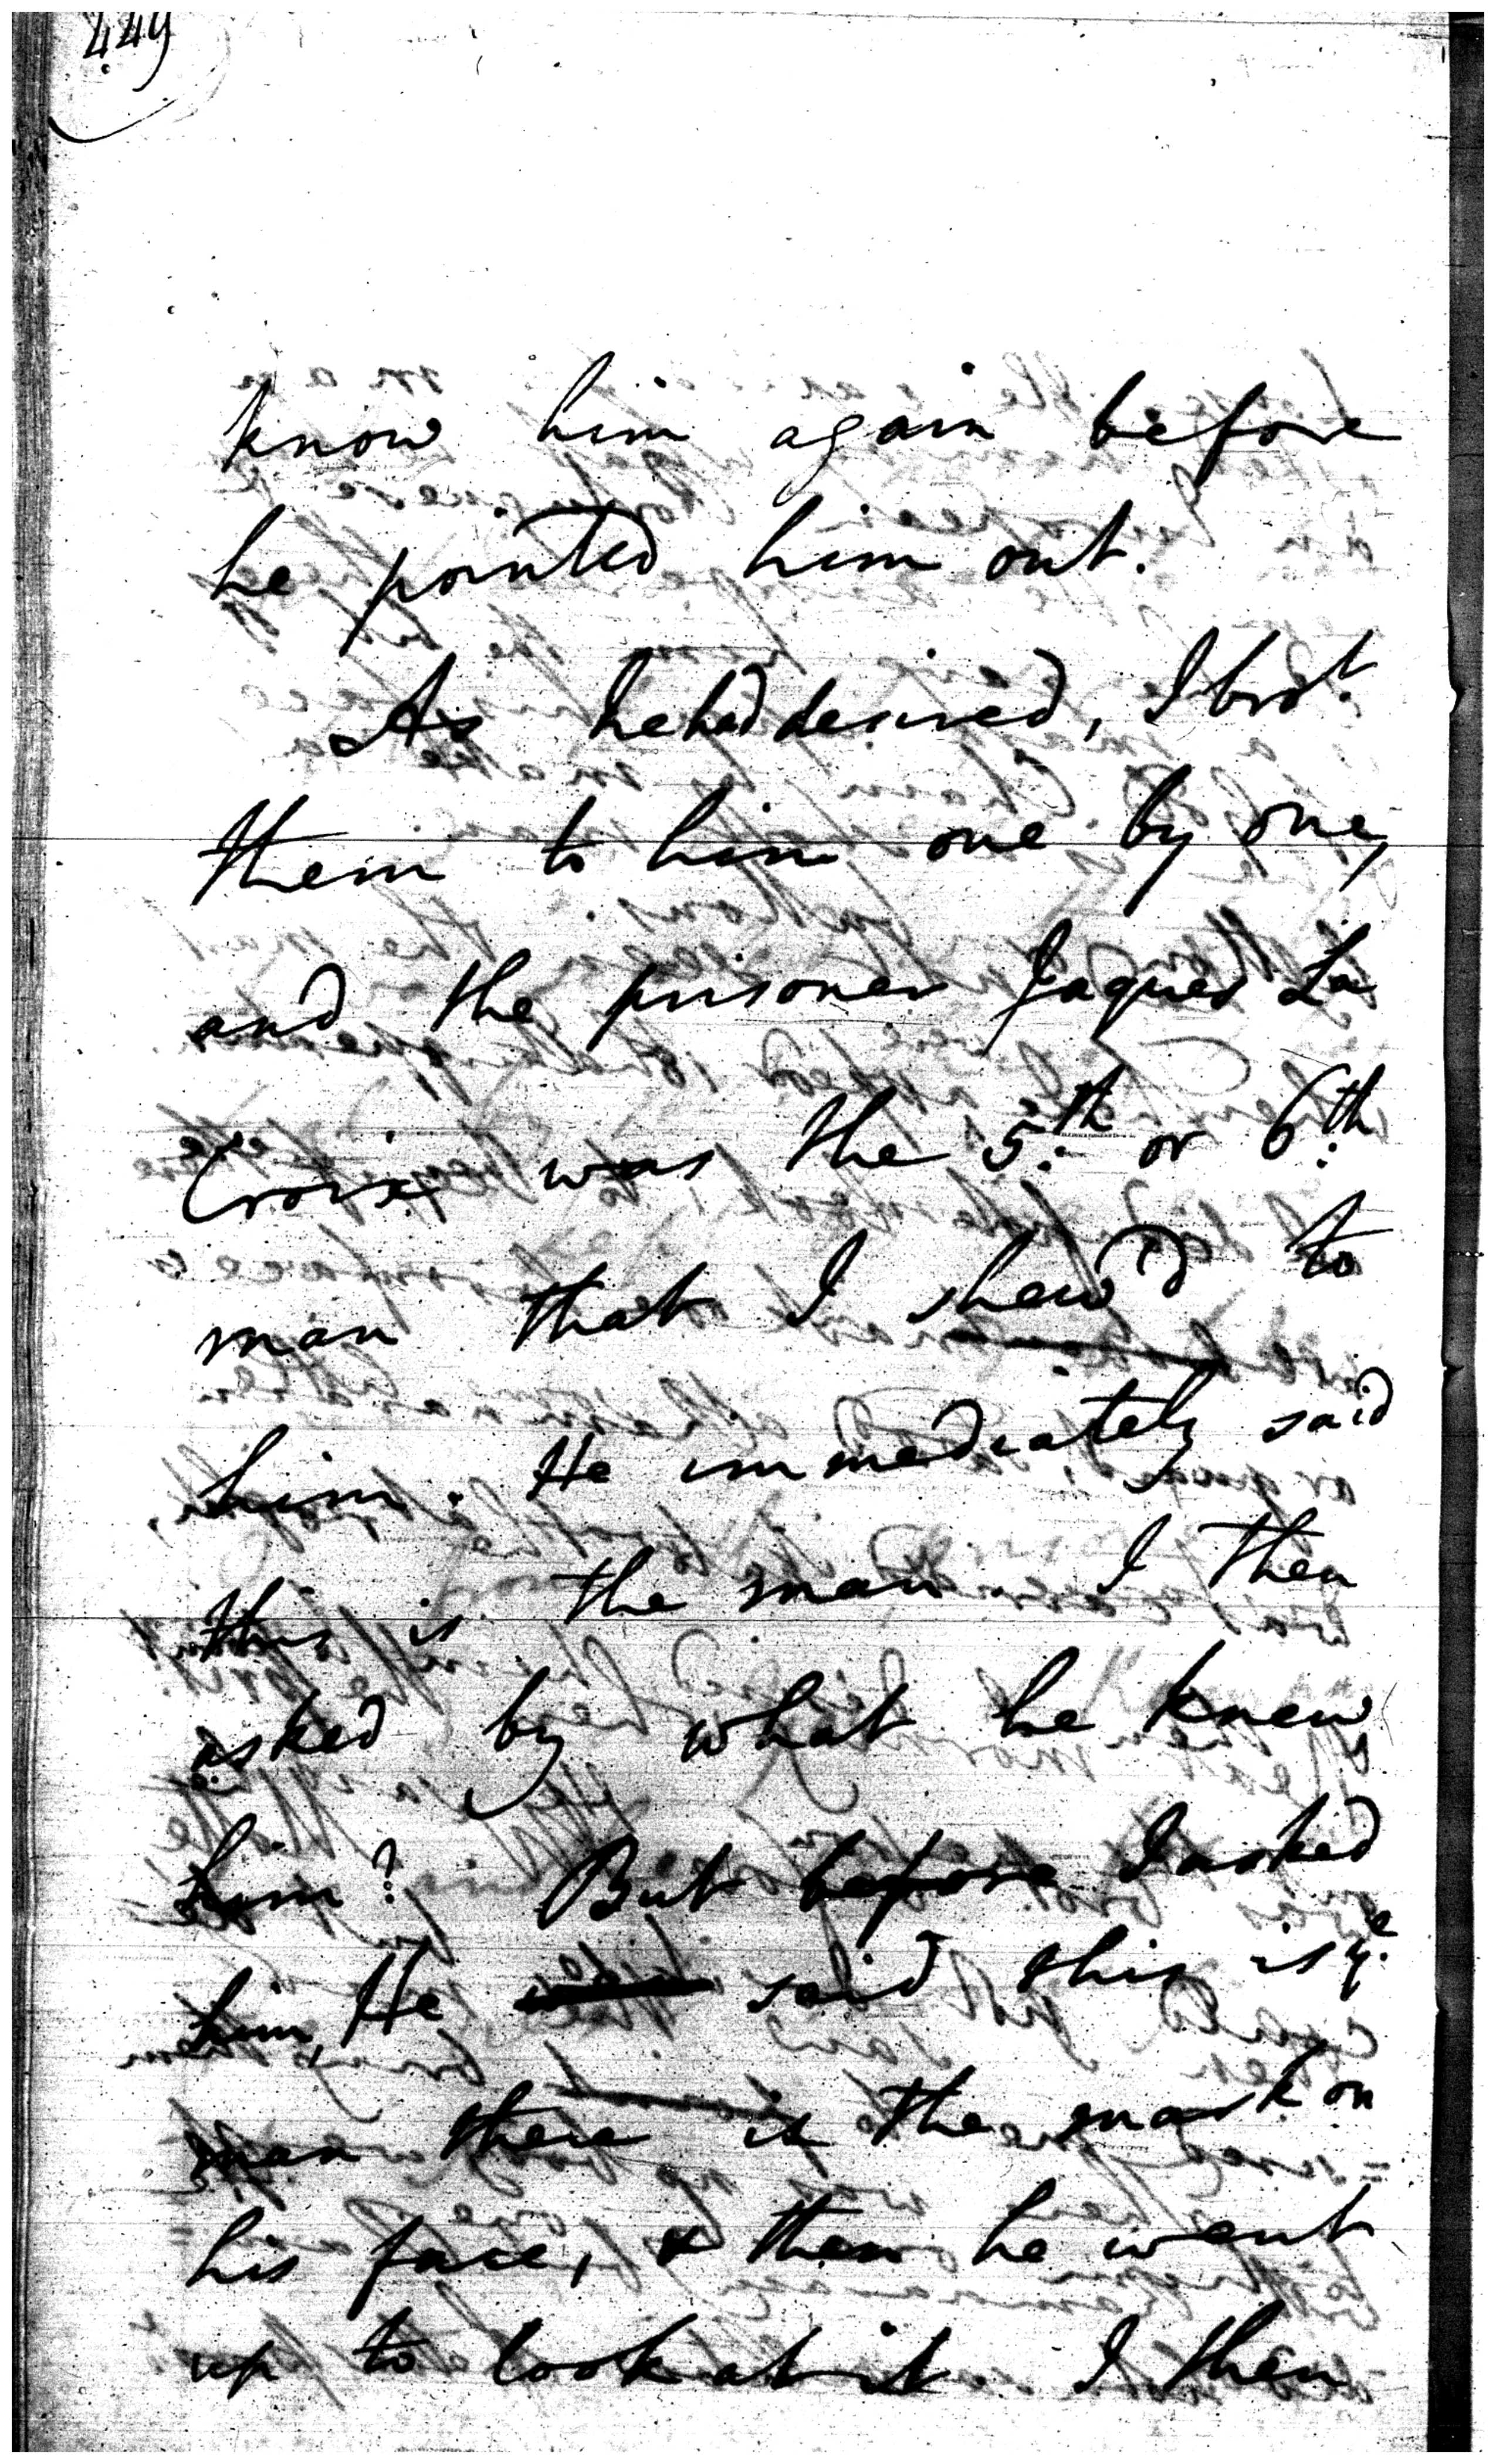 449
know him again before
he pointed him out.
As he had desired, I brot.
them to him one by one,
and the prisoner Jaques La
Croix was the 5th. or 6th.
man that I shew'd to
him. He immediately said
this is the man. I then
asked by what he knew
him? But before I asked
him, He said this is ye.
man there is the mark on
his face, & then he went
up to look at it I then